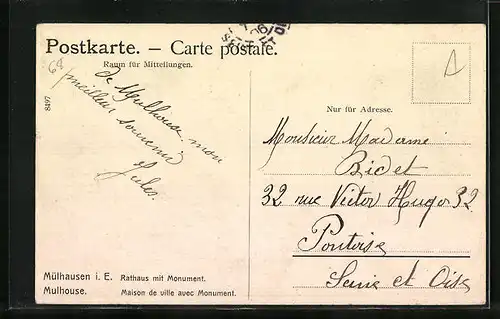 Postkarte. – Carte postale.
Raum für Mitteilungen.
64
de Mulhouse mon
meilleur souvenir
Jules.
8497
Nur für Adresse.
Monsieur Madame
Bidet
32 rue Victor Hugo 32
Pontoise
Seine et Oise
Mülhausen i. E. Rathaus mit Monument.
Mulhouse. Maison de ville avec Monument.